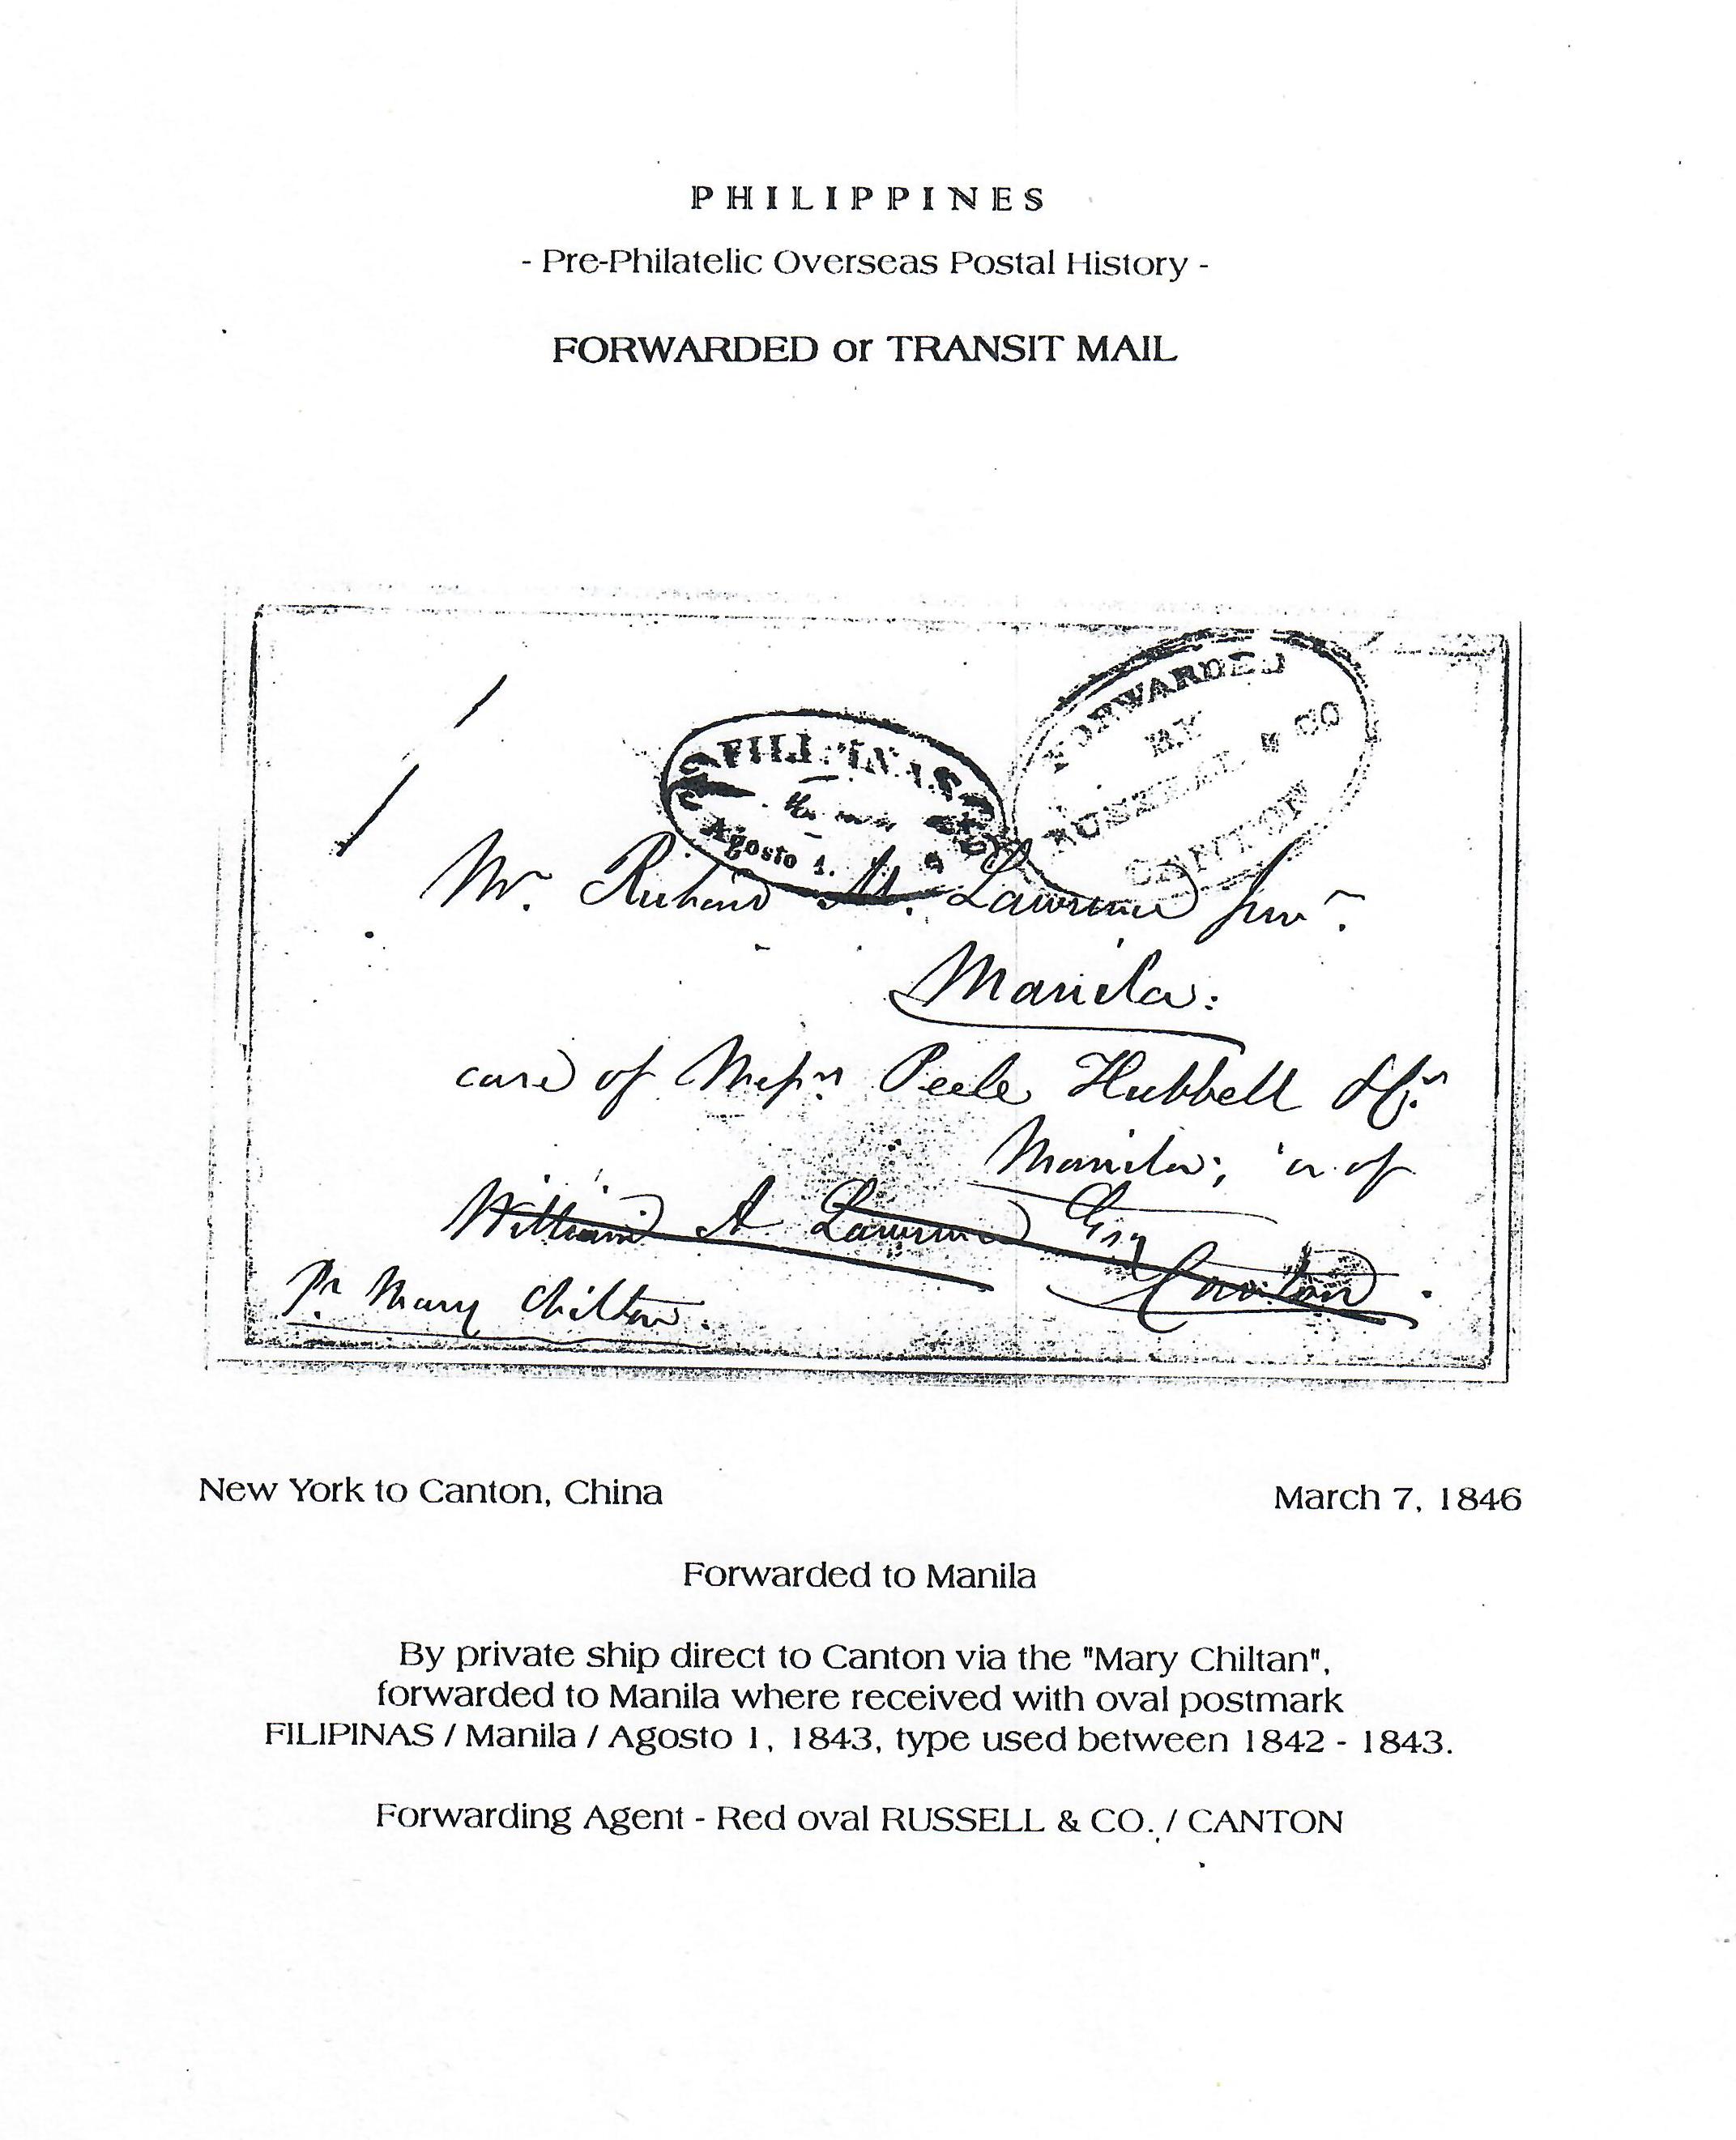 PHILIPPINES
- Pre-Philatelic Overseas Postal History -
FORWARDED or TRANSIT MAIL
FORWARDED
BY
RUSSELL & CO
CANTON
FILIPINAS
Agosto 1.
Mr. Richard M. Lawrence Junr.
Manila:
care of Messrs Peele Hubbell & Co.
Manila; or of
William A. Lawrence Esq
Canton.
Pr. Mary Chilton.
New York to Canton, China
March 7, 1846
Forwarded to Manila
By private ship direct to Canton via the "Mary Chiltan",
forwarded to Manila where received with oval postmark
FILIPINAS / Manila / Agosto 1, 1843, type used between 1842 - 1843.
Forwarding Agent - Red oval RUSSELL & CO. / CANTON